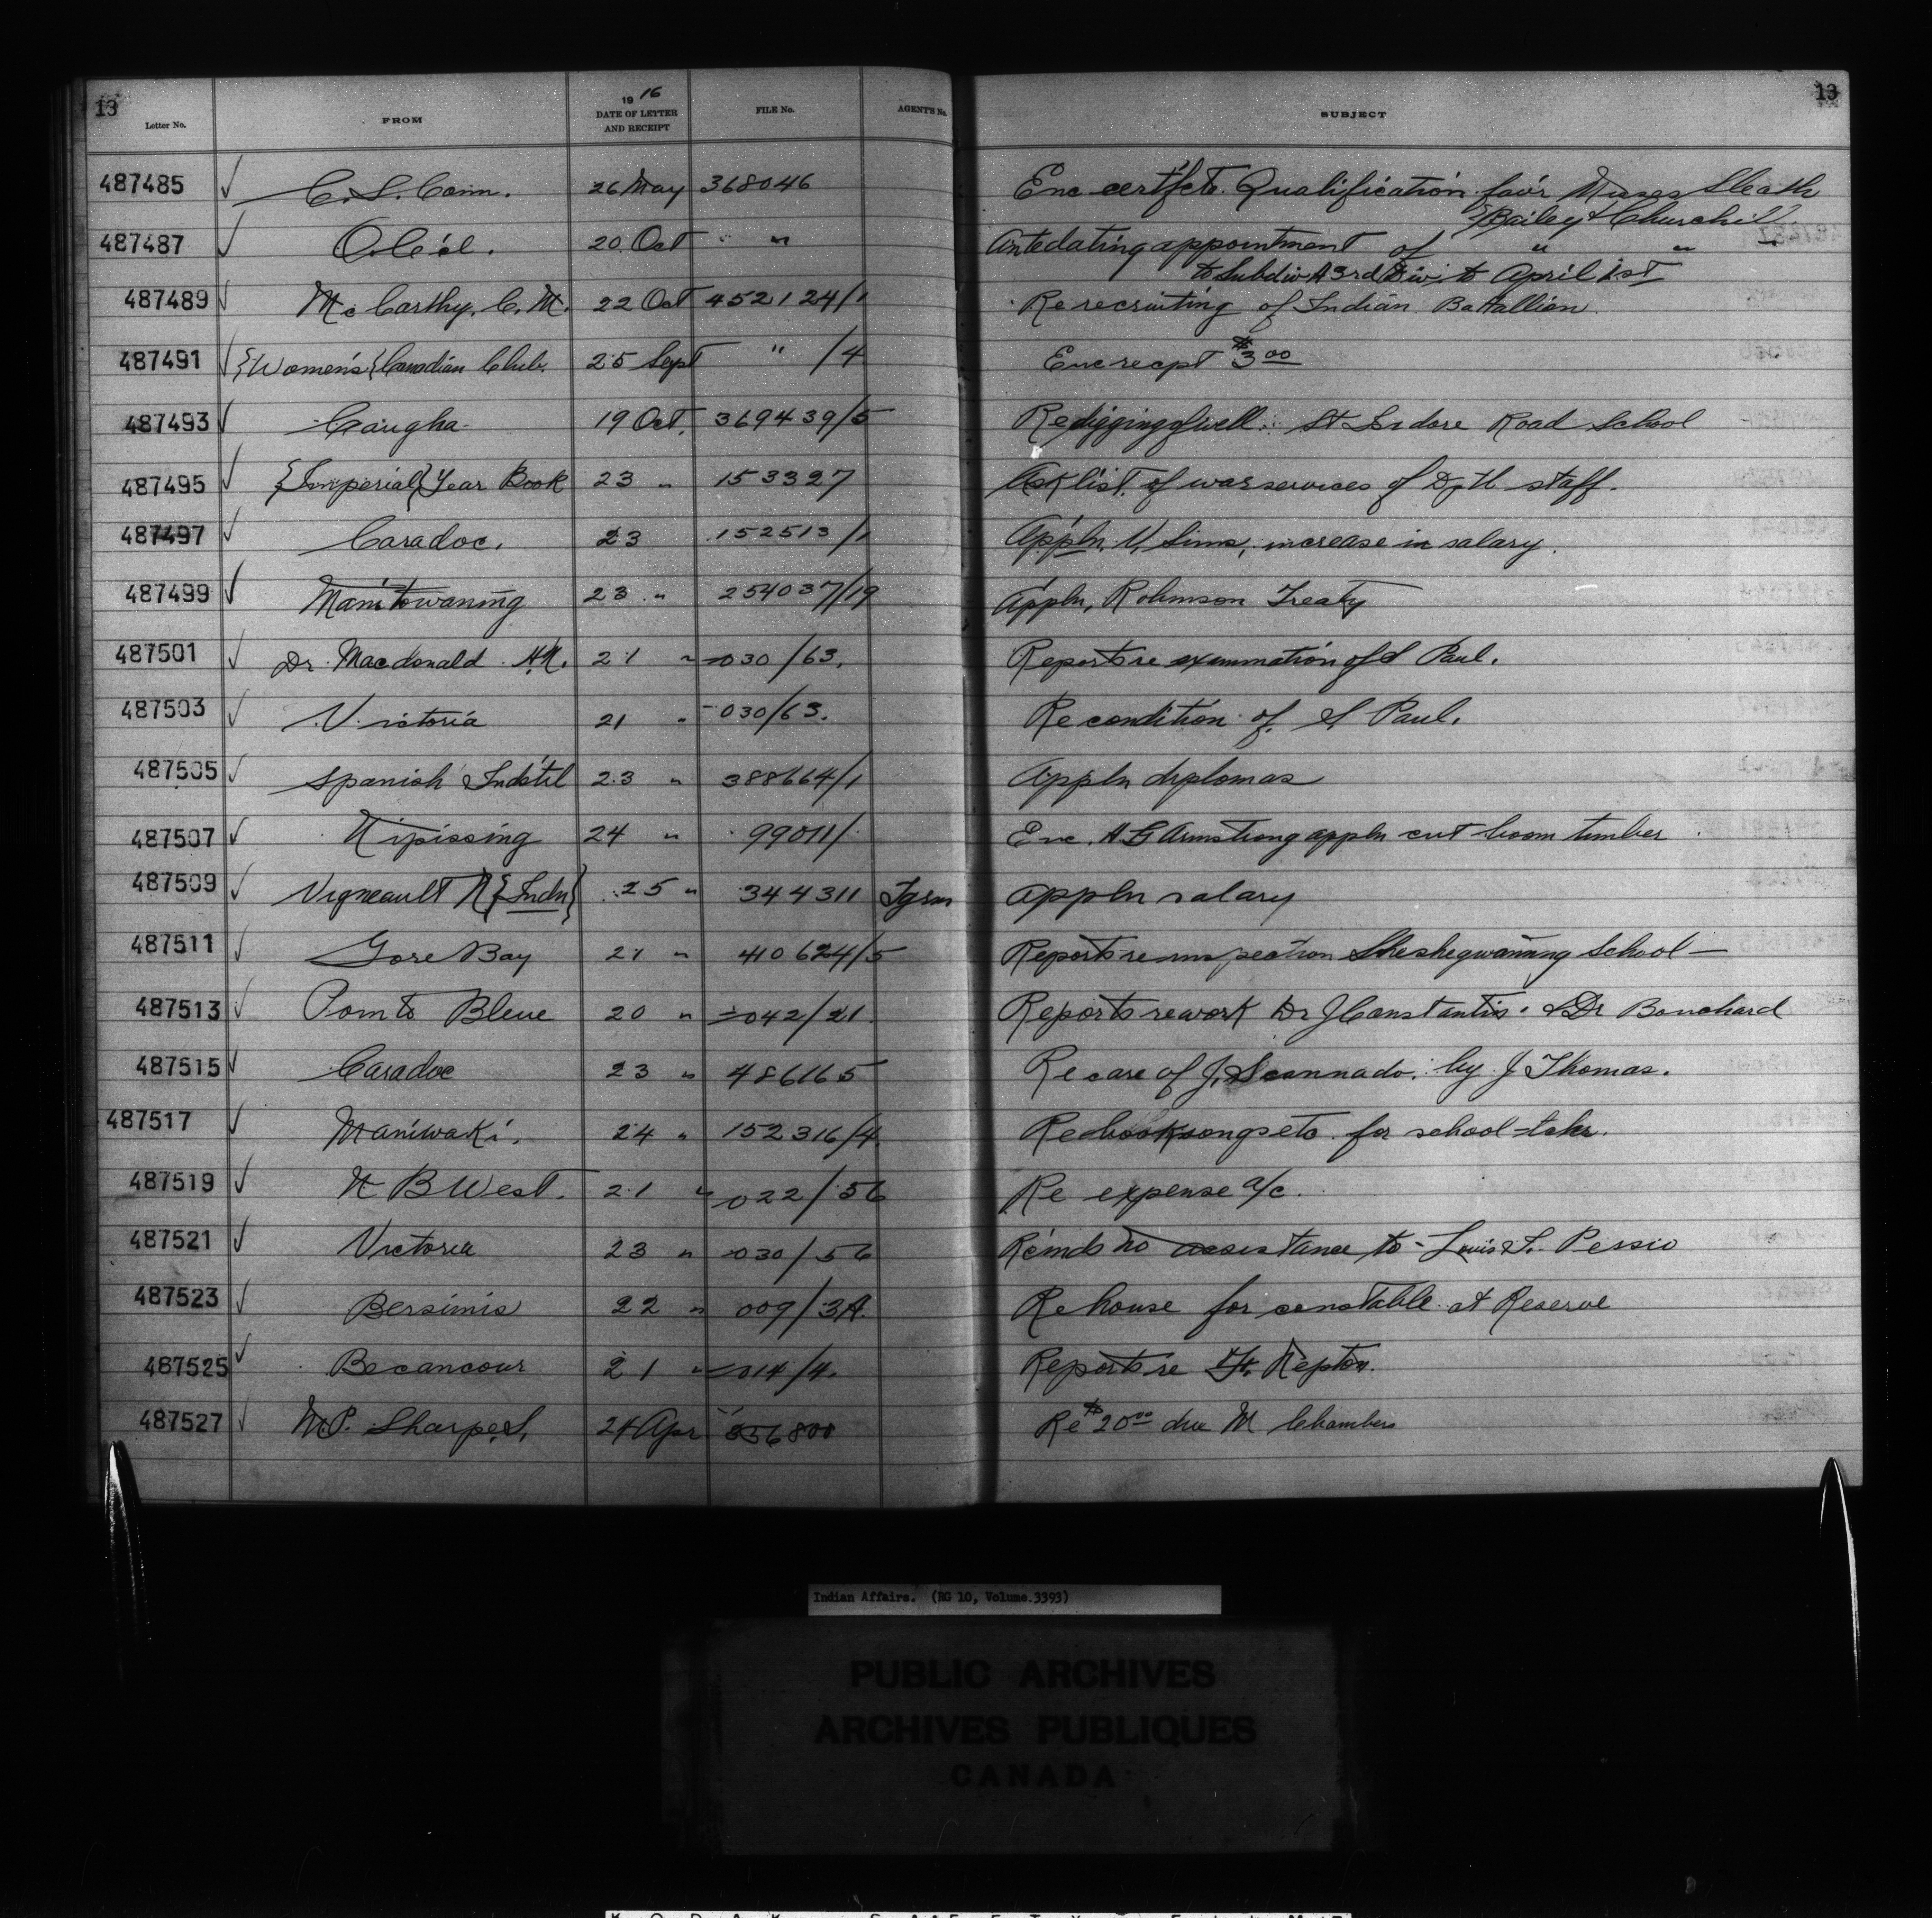 13
13
Letter No. FROM 1916 DATE OF LETTER AND RECEIPT FILE No. AGENT'S No. SUBJECT
487485 ✓ C. S. Com. 26 May 368046 Enc certfcts. Qualification fav'r Misses Sleath
& Bailey & Churchill.
487487 ✓ O.C'cl. 20 Oct " " Antedating appointment of " "
to Subdiv A 3rd Div. to April 1st
487489 ✓ McCarthy, C. M. 22 Oct 452124/1 Re recruiting of Indian Battallion.
487491 ✓ {Women's} Canadian Club. 25 Sept " /4 Enc recpt $3.00
487493 ✓ Caugha 19 Oct. 369439/5 Re digging of well St Isidore Road School
487495 ✓ {Imperial} Year Book 23 " 153327 Ask list of war services of Dpt staff.
487497 ✓ Caradoc. 23 152513/1 Appln, Sims, increase in salary.
487499 ✓ Manitowaning 23 " 254037/19 Appln, Robinson Treaty
487501 ✓ Dr. Macdonald 21 " 030/63. Reports re exmmation of S Paul.
487503 ✓ Victoria 21 " 030/63. Re condition of S Paul.
487505 ✓ Spanish Indstl 23 " 388664/1 Appln diplomas
487507 ✓ Nipissing 24 " 99011/ Enc. A G Armstrong appln cut boom timber
487509 ✓ Vigneault N {Indn} 25 " 344311 Tgrm appln salary
487511 ✓ Gore Bay 21 " 410624/5 Reports re inspection Sheshegwaning School —
487513 ✓ Pointe Bleue 20 " 042/21. Reports re work Dr J Constantin & Dr Bouchard
487515 ✓ Caradoc 23 " 486165 Re care of J. Scannado. by J Thomas.
487517 ✓ Maniwaki. 24 " 152316/4 Re book songs etc. for school-tchr.
487519 ✓ N B West. 21 " 022/56 Re expense a/c.
487521 ✓ Victoria 23 " 030/56 Re'mds no assistance to Louis S. Persio
487523 ✓ Bersimis 22 " 009/3A. Re house for constable at Reserve
487525 ✓ Becancour 21 " 014/4. Reports re Nepton.
487527 ✓ M.P. Sharpe S. 24 Apr 356800 Re $20.00 due M Chambers
Indian Affairs. (RG 10, Volume.3393)
PUBLIC ARCHIVES
ARCHIVES PUBLIQUES
CANADA